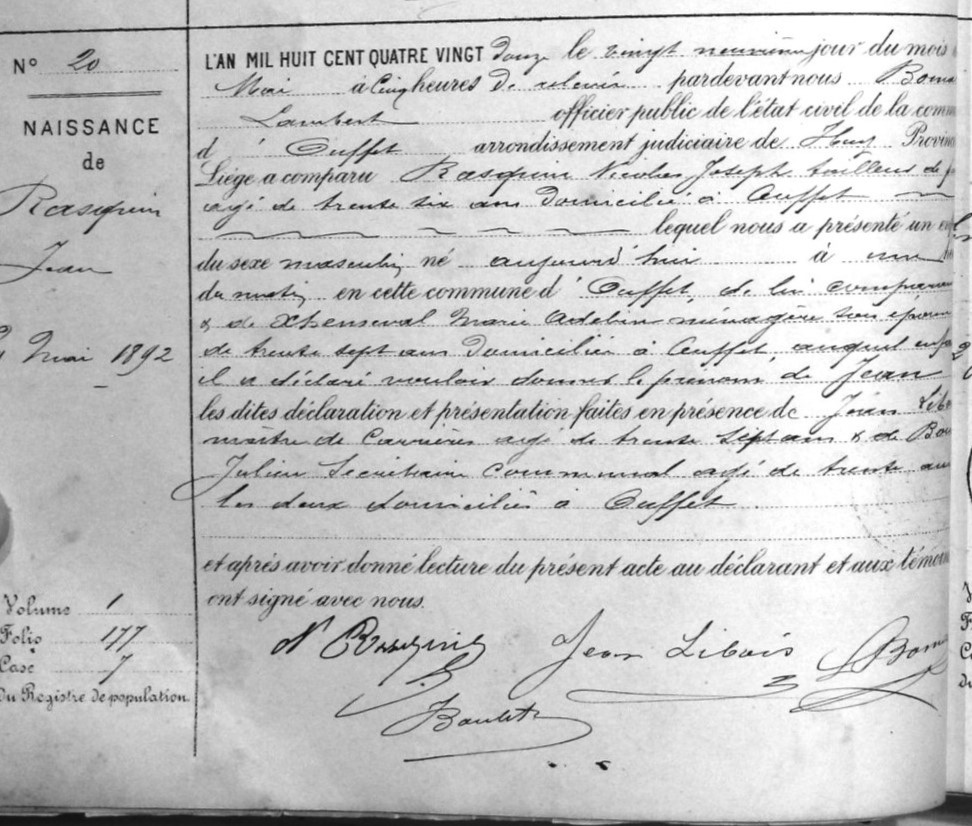 N° 20
NAISSANCE
de
Rasquin
Jean
Mai 1892
Volume 1
Folio 177
Case 7
du Registre de population
L'AN MIL HUIT CENT QUATRE VINGT douze le vingt neuvième jour du mois
Mai à Cinq heures de relevée pardevant nous
Lambert officier public de l'état civil de la
d'Ouffet arrondissement judiciaire de Huy
Liége a comparu Rasquin Nicolas Joseph tailleur de
agé de trente six ans domicilié à Ouffet
lequel nous a présenté un
du sexe masculin né aujourd'hui à une
du matin en cette commune d'Ouffet, de lui
& de Xhenseval Marie ménagère son
de trente sept ans domiciliée à Ouffet, auquel
il a déclaré vouloir donner le prénom de Jean
les dites déclaration et présentation faites en présence de Jean
maître de Carrières agé de trente sept ans & de
Julien Secrétaire communal agé de trente
les deux domiciliés à Ouffet
et après avoir donné lecture du présent acte au déclarant et aux
ont signé avec nous.
N Rasquin Jean Libois